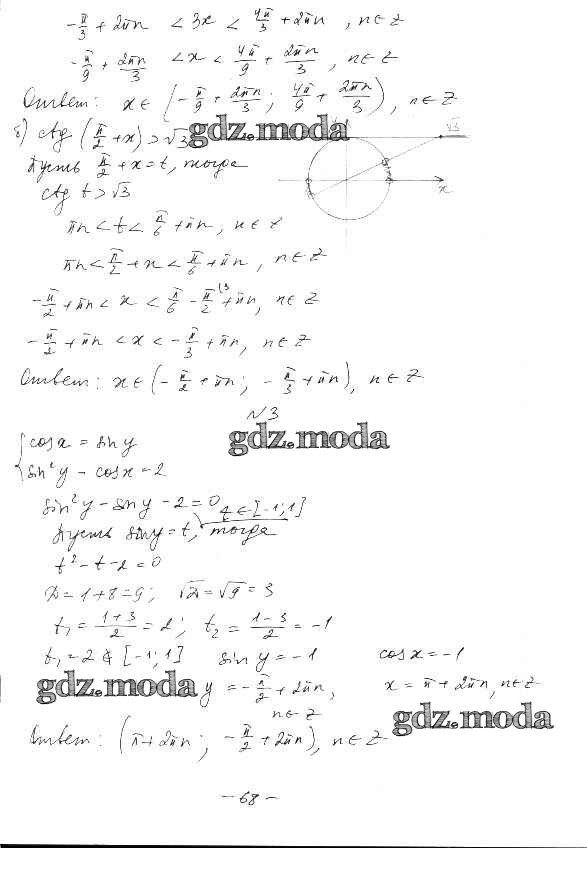 -π/3 + 2πn < 3x < 4π/3 + 2πn, n∈Z
-π/9 + 2πn/3 < x < 4π/9 + 2πn/3, n∈Z
Ответ: x∈[-π/9 + 2πn/3; 4π/9 + 2πn/3), n∈Z
б) ctg(π/2 + x) > √3
gdz.moda
√3
Пусть π/2 + x = t, тогда
ctg t > √3
x
πn < t < π/6 + πn, n∈Z
πn < π/2 + x < π/6 + πn, n∈Z
-π/2 + πn < x < π/6 - π/2 + πn, n∈Z
-π/2 + πn < x < -π/3 + πn, n∈Z
Ответ: x∈(-π/2 + πn; -π/3 + πn), n∈Z
N3
gdz.moda
{cos x = sin y
sin²y - cos x = 2
sin²y - sin y - 2 = 0
t∈[-1;1]
Пусть sin y = t, тогда
t² - t - 2 = 0
D = 1 + 8 = 9; √D = √9 = 3
t₁ = (1+3)/2 = 2; t₂ = (1-3)/2 = -1
t₁ = 2 ∉ [-1;1] sin y = -1 cos x = -1
gdz.moda y = -π/2 + 2πn, x = π + 2πn, n∈Z
n∈Z
gdz.moda
Ответ: (π + 2πn; -π/2 + 2πn), n∈Z
- 68 -